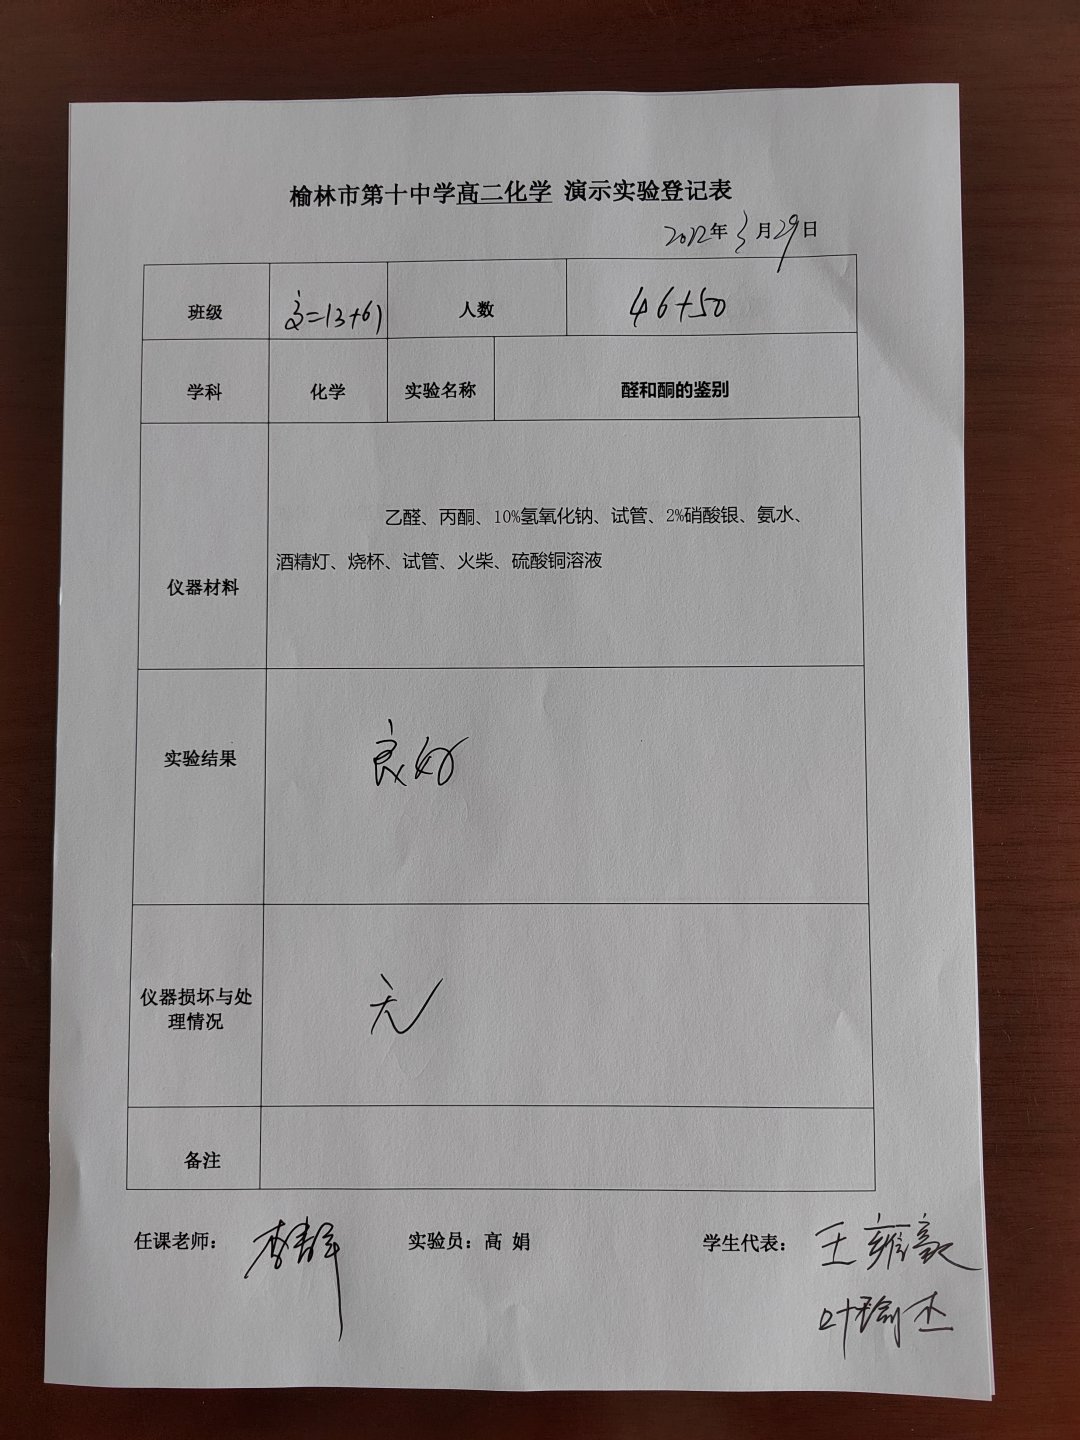 榆林市第十中学高二化学 演示实验登记表
2022年3月29日
班级 人数 46+50
学科 化学 实验名称 醛和酮的鉴别
乙醛、丙酮、10%氢氧化钠、试管、2%硝酸银、氨水、
酒精灯、烧杯、试管、火柴、硫酸铜溶液
仪器材料
实验结果 良好
仪器损坏与处
理情况
无
备注
任课老师： 实验员：高 娟 学生代表：王雍豪
叶瑜杰